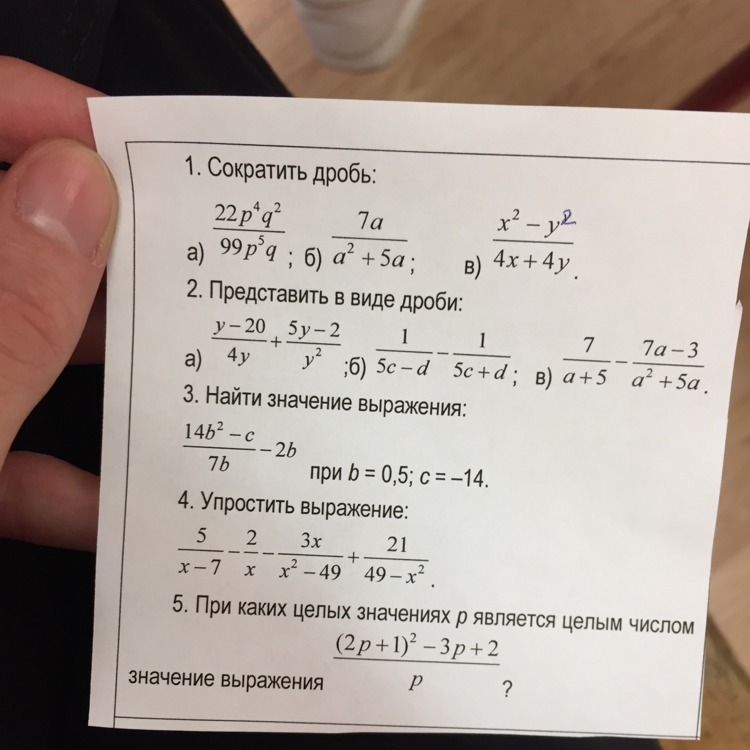 1. Сократить дробь:
а) 22p⁴q² / 99p⁵q ; б) 7a / a² + 5a ; в) x² − y² / 4x + 4y .
2. Представить в виде дроби:
а) y − 20 / 4y + 5y − 2 / y² ;б) 1 / 5c − d − 1 / 5c + d ; в) 7 / a + 5 − 7a − 3 / a² + 5a .
3. Найти значение выражения:
14b² − c / 7b − 2b при b = 0,5; c = –14.
4. Упростить выражение:
5 / x − 7 − 2 / x − 3x / x² − 49 + 21 / 49 − x² .
5. При каких целых значениях p является целым числом
значение выражения (2p + 1)² − 3p + 2 / p ?